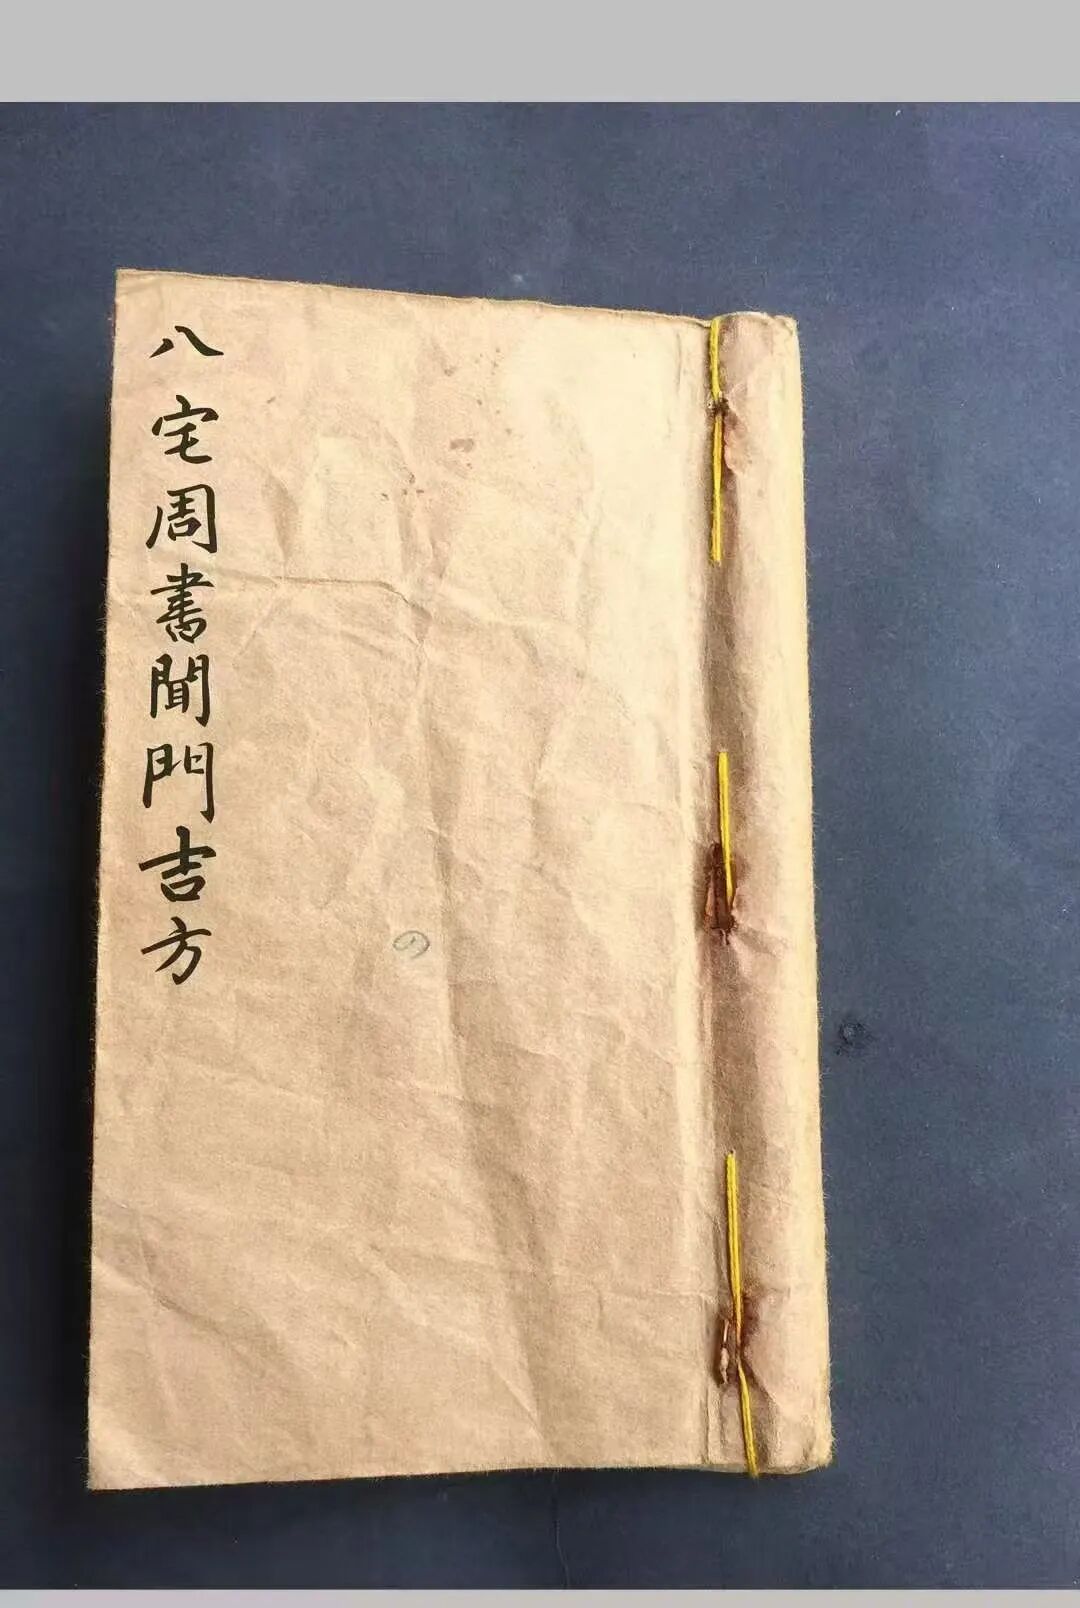 八宅周書聞門吉方